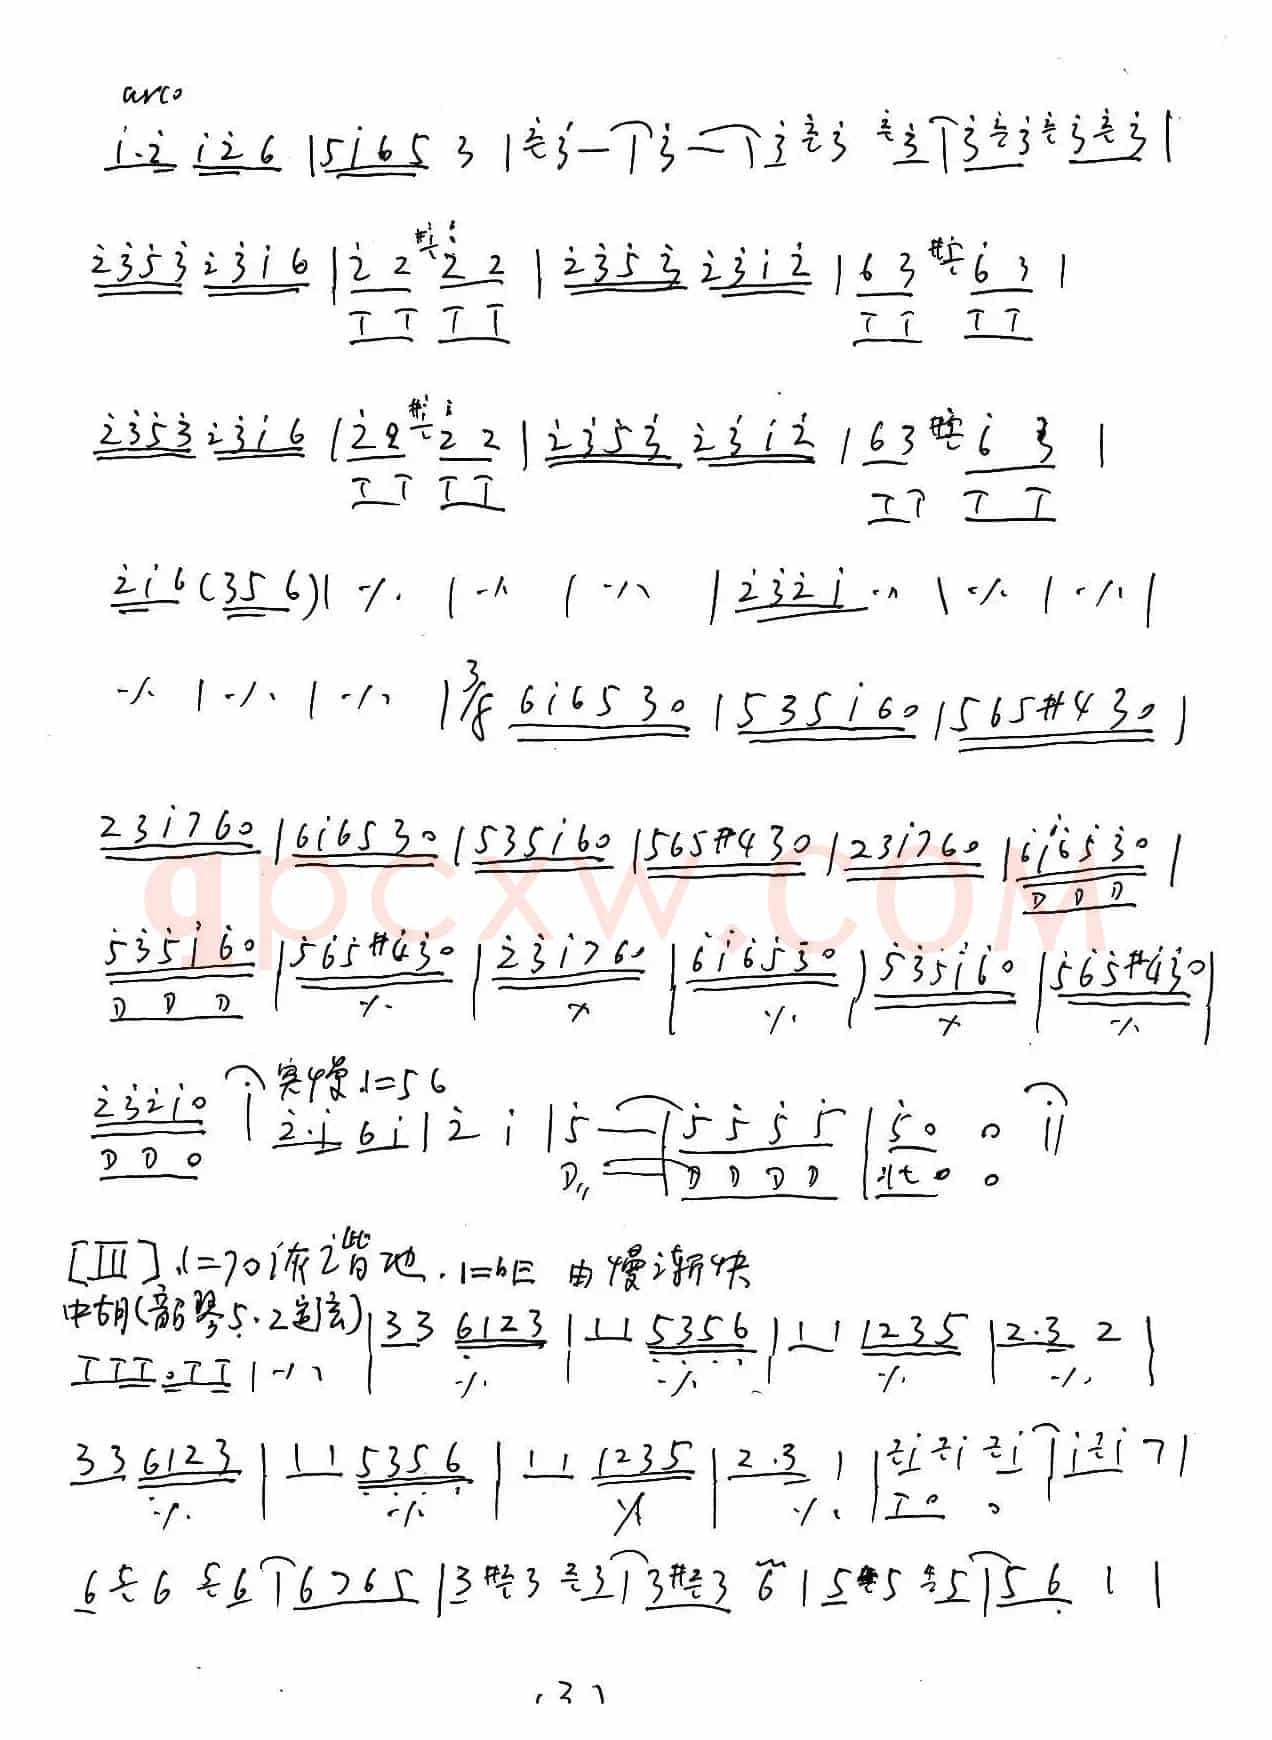 arco
i·2 i26 | 5i65 3 | 3 — | 3 — | 3 3 3 | 3 3 3 3 |
2353 23i6 | 2 2 #i 2 2 | 2353 23i2 | 6 3 #5 6 3 |
T T T T T T T T
2353 23i6 | 2 2 #i 2 2 | 2353 23i2 | 6 3 i 3 |
T T T T T T T T
2i6 (356) | ·/· | ·/· | ·/· | 232i ·/· | ·/· | ·/· |
·/· | ·/· | ·/· | 3/8 6i6530 | 535i60 | 565#430 |
23i760 | 6i6530 | 535i60 | 565#430 | 23i760 | 6i6530 |
D D D
535i60 | 565#430 | 23i760 | 6i6530 | 535i60 | 565#430 |
D D D ·/· ·/· ·/· ·/· ·/·
232i0 | 突慢 ♩=56
2·i 6i | 2 i | 5 — | 5 5 5 5 | 5 0 0 ||
D D 0 D D D D D 0 0
[III] ♩=70 诙谐地. 1=bE 由慢渐快
中胡(韶琴5.2定弦) | 3 3 6123 | 1 1 5356 | 1 1 1235 | 2·3 2 |
T T T T T | ·/· ·/· ·/· ·/· ·/·
3 3 6123 | 1 1 5356 | 1 1 1235 | 2·3 1 | 2i 2i 2i | i 2i 7 |
·/· ·/· ·/· ·/· T 0 0
6 5 6 5 6 | 6765 | 3 #2 3 2 3 | 3 #2 3 6 | 5 5 5 | 5 6 1 |
qpcxw.com